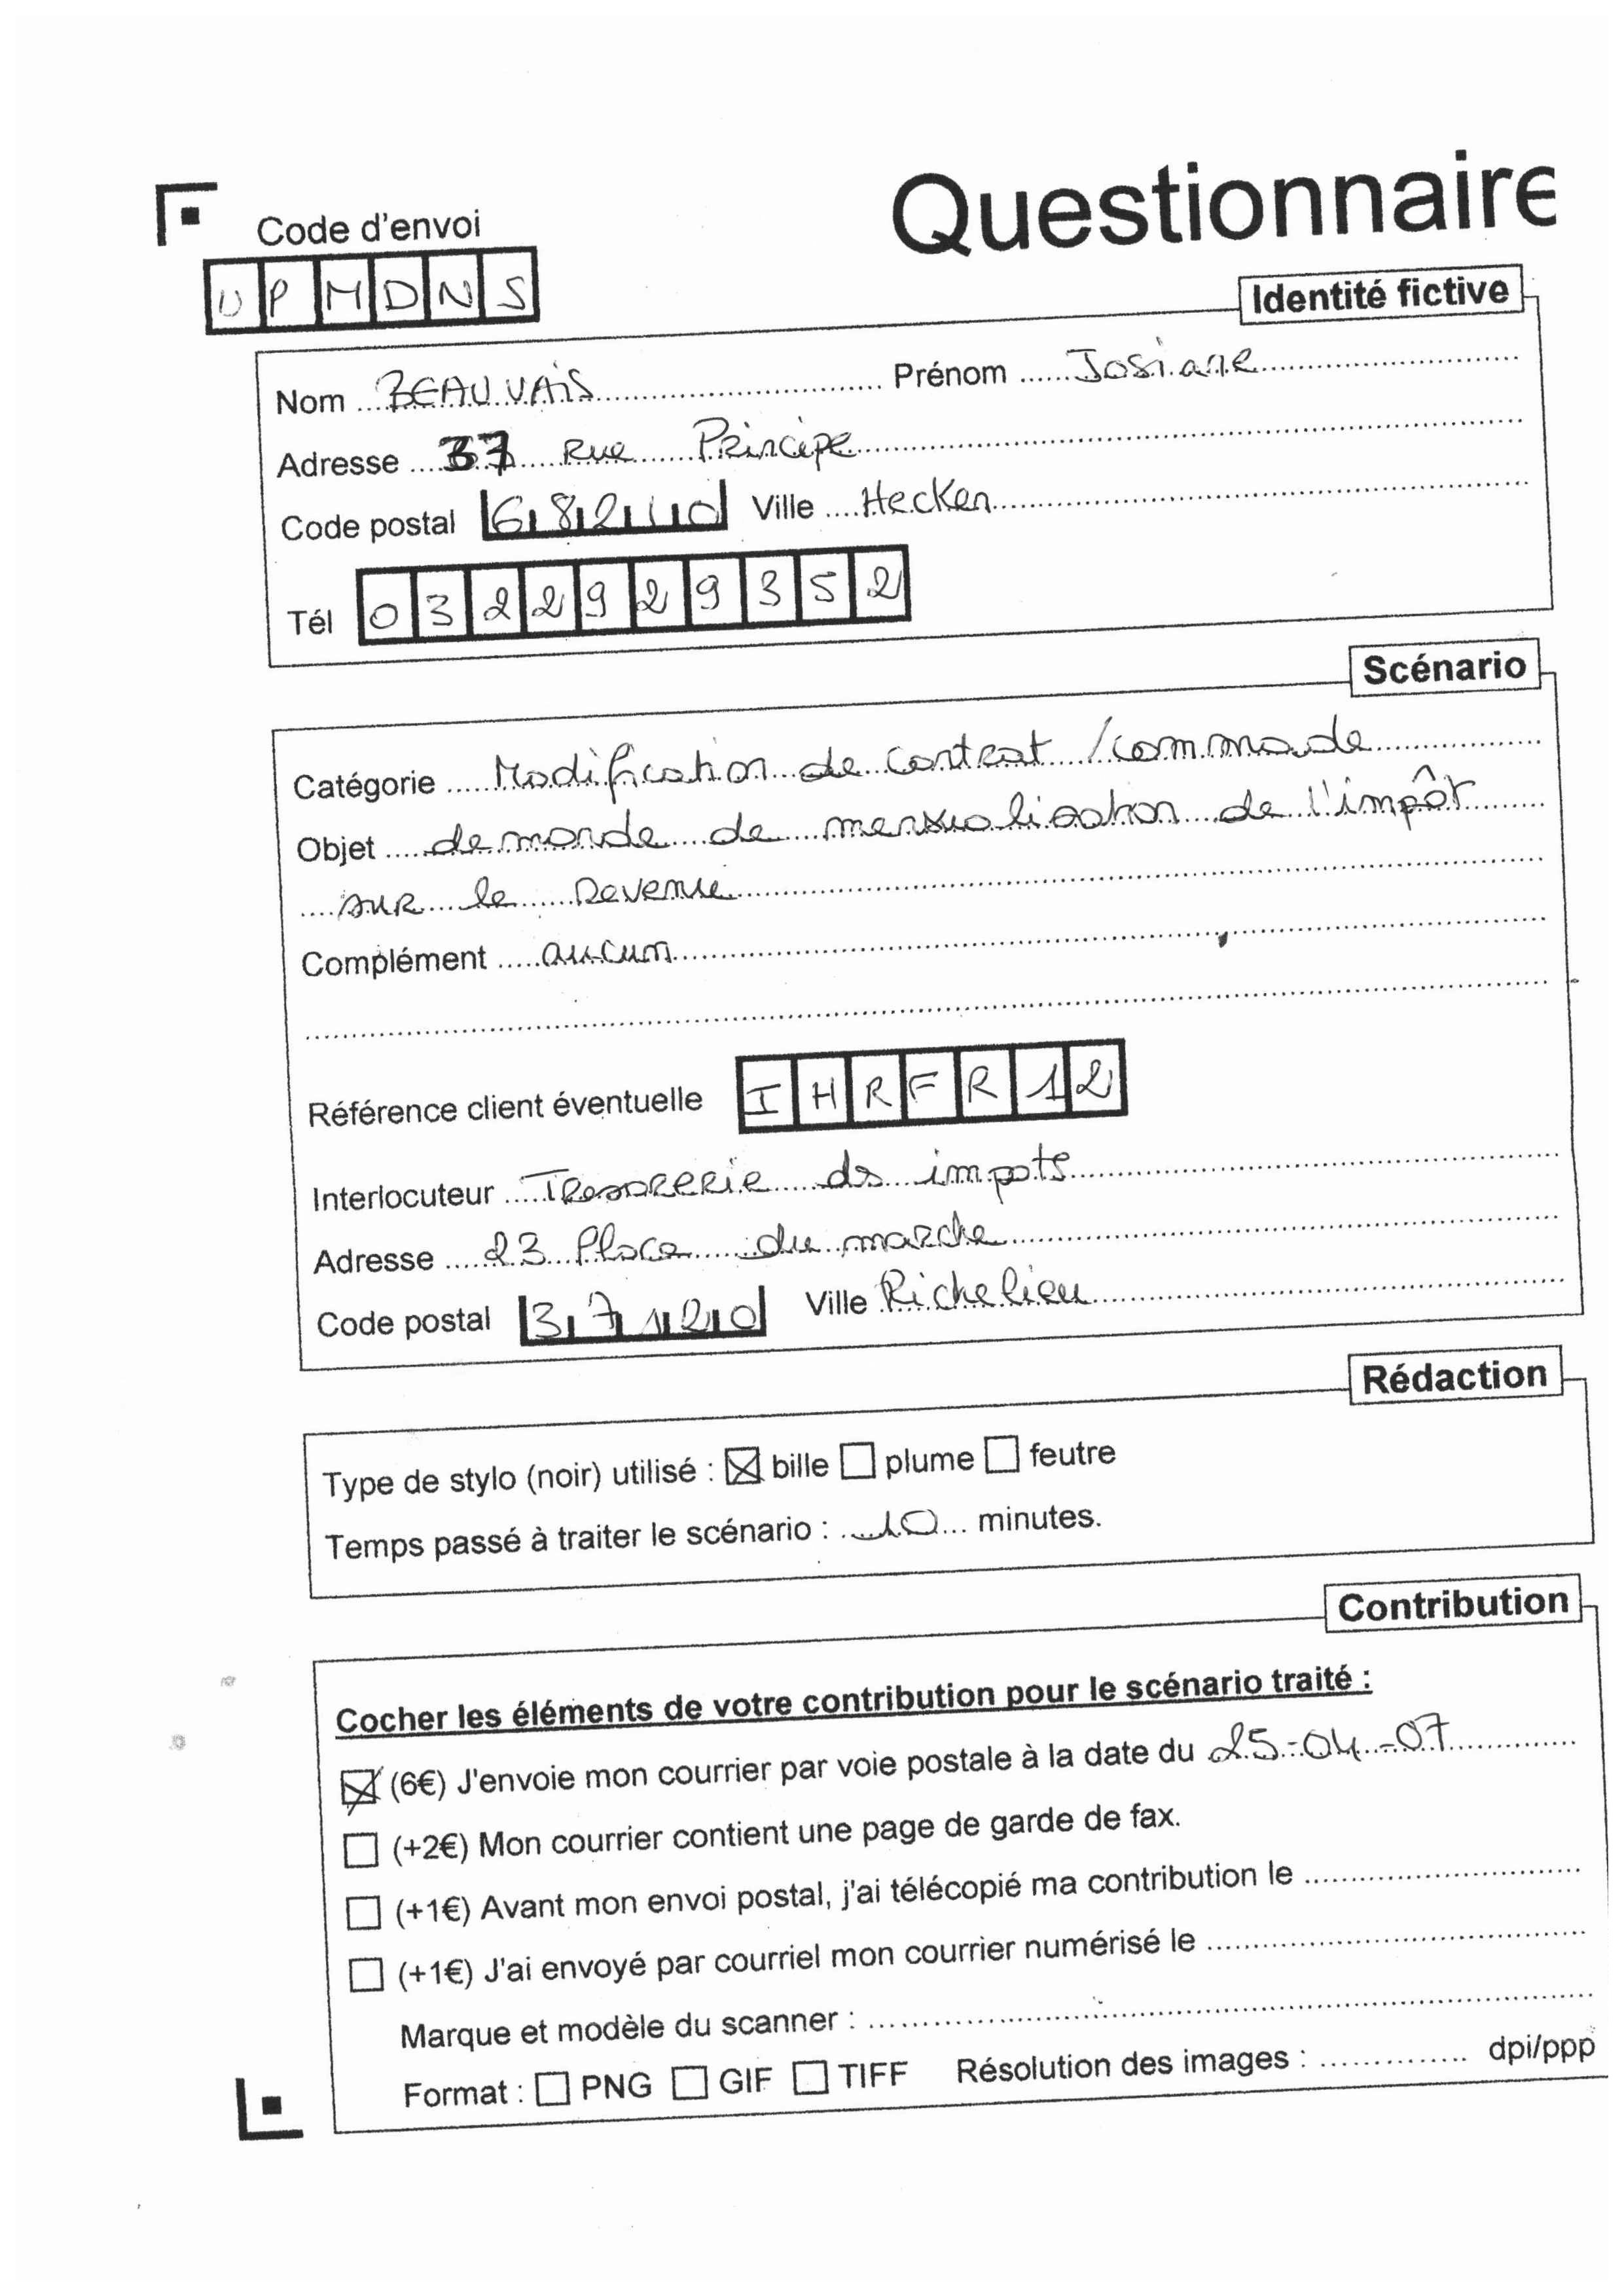 Questionnaire
Code d'envoi
UPMDNS
Identité fictive
Nom BEAUVAIS Prénom Josiane
Adresse 37 Rue Principe
Code postal 68210 Ville Hecken
Tél 0322929352
Scénario
Catégorie Modification de contrat / commande
Objet demande de mensualisation de l'impôt
sur le revenu
Complément aucun
Référence client éventuelle IHRFR12
Interlocuteur Tresorerie ds impots
Adresse 23 Place du marche
Code postal 37120 Ville Richelieu
Rédaction
Type de stylo (noir) utilisé : ☒ bille ☐ plume ☐ feutre
Temps passé à traiter le scénario : 10 minutes.
Contribution
Cocher les éléments de votre contribution pour le scénario traité :
☒ (6€) J'envoie mon courrier par voie postale à la date du 25-04-07
☐ (+2€) Mon courrier contient une page de garde de fax.
☐ (+1€) Avant mon envoi postal, j'ai télécopié ma contribution le
☐ (+1€) J'ai envoyé par courriel mon courrier numérisé le
Marque et modèle du scanner :
Format : ☐ PNG ☐ GIF ☐ TIFF Résolution des images : dpi/ppp